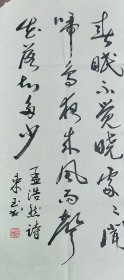 春眠不觉晓处处闻
啼鸟夜来风雨声
花落知多少
孟浩然诗